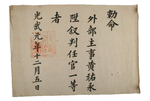 勅命
外部主事黃祐永
陞叙判任官一等
者
光武元年十二月五日